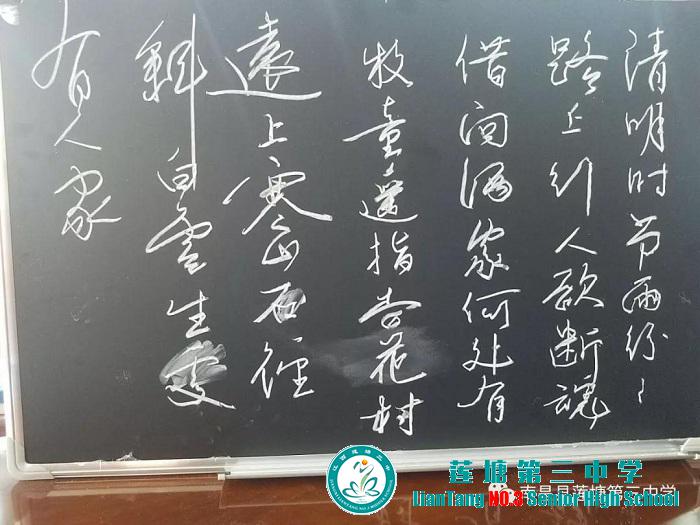 清明时节雨纷纷
路上行人欲断魂
借问酒家何处有
牧童遥指杏花村
遠上寒山石径
斜白雲生处
有人家
莲塘第三中学
LianTang NO.3 Senior High School
南昌县莲塘第三中学